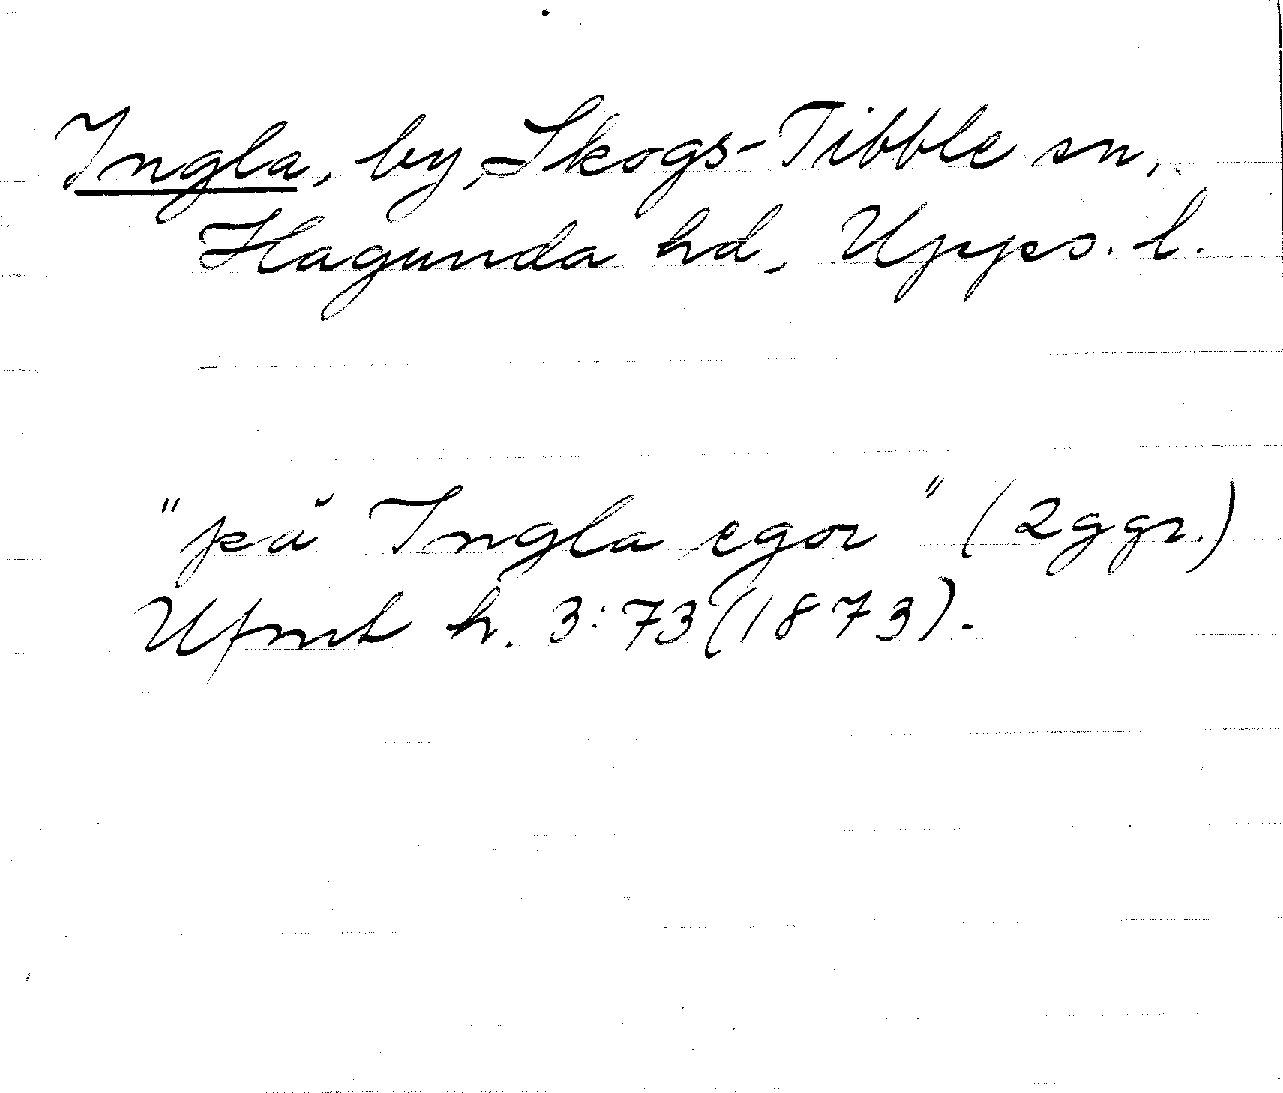 Ingla, by, Skogs-Tibble sn,
Hagunda hd, Upps. l.
"på Ingla egor" (2 ggr.)
Ufmt h. 3:73 (1873).